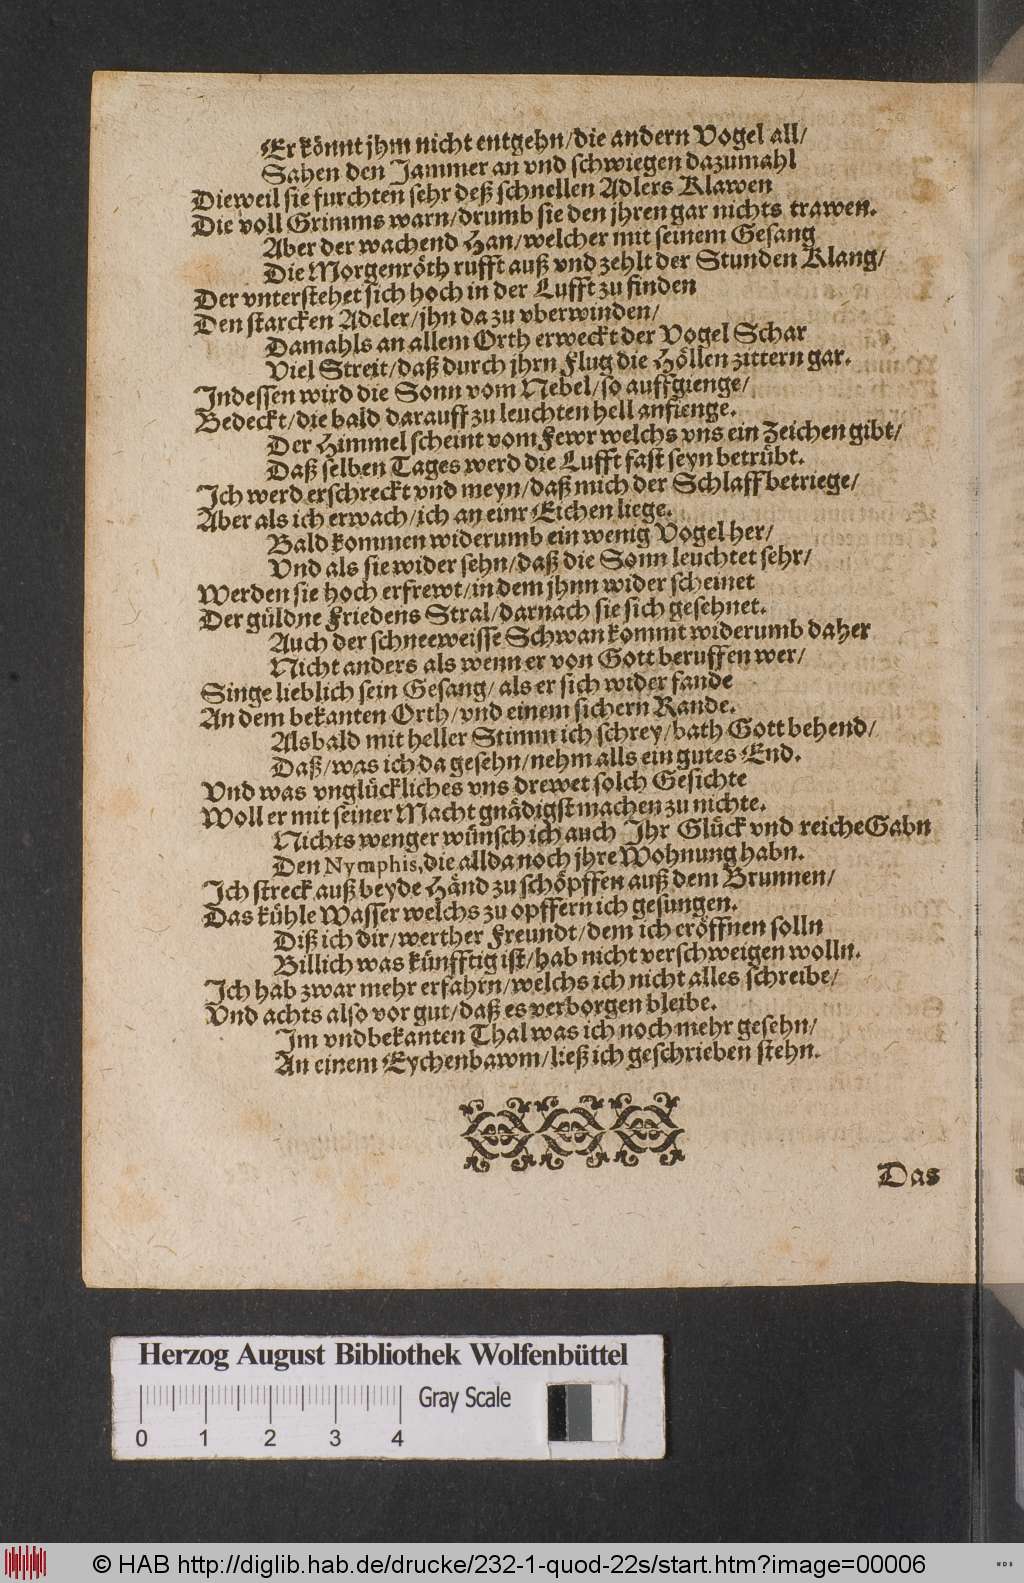 Er könnt jhm nicht entgehn/die andern Vogel all/
Sahen den Jammer an vnd schwiegen dazumahl
Dieweil sie furchten sehr deß schnellen Adlers Klawen
Die voll Grimms warn/drumb sie den jhren gar nichts trawen.
Aber der wachend Han/welcher mit seinem Gesang
Die Morgenröth rufft auß vnd zehlt der Stunden Klang/
Der vnterstehet sich hoch in der Lufft zu finden
Den starcken Adeler/jhn da zu vberwinden/
Damahls an allem Orth erweckt der Vogel Schar
Viel Streit/daß durch jhrn Flug die Höllen zittern gar.
Indessen wird die Sonn vom Nebel/so auffgienge/
Bedeckt/die bald darauff zu leuchten hell anfienge.
Der Himmel scheint vom Fewr welchs vns ein Zeichen gibt/
Daß selben Tages werd die Lufft fast seyn betrübt.
Ich werd erschreckt vnd meyn/daß mich der Schlaff betriege/
Aber als ich erwach/ich an einr Eichen liege.
Bald kommen widerumb ein wenig Vogel her/
Vnd als sie wider sehn/daß die Sonn leuchtet sehr/
Werden sie hoch erfrewt/in dem jhnn wider scheinet
Der güldne Friedens Stral/darnach sie sich gesehnet.
Auch der schneeweisse Schwan kommt widerumb daher
Nicht anders als wenn er von Gott beruffen wer/
Singe lieblich sein Gesang/als er sich wider fande
An dem bekanten Orth/vnd einem sichern Rande.
Alsbald mit heller Stimm ich schrey/bath Gott behend/
Daß/was ich da gesehn/nehm alls ein gutes End.
Vnd was vnglückliches vns drewet solch Gesichte
Woll er mit seiner Macht gnädigst machen zu nichte.
Nichts wenger wünsch ich auch Ihr Glück vnd reiche Gabn
Den Nymphis, die allda noch jhre Wohnung habn.
Ich streck auß beyde Händ zu schöpffen auß dem Brunnen/
Das kühle Wasser welchs zu opffern ich gesungen.
Diß ich dir/werther Freundt/dem ich eröffnen solln
Billich was künfftig ist/hab nicht verschweigen wolln.
Ich hab zwar mehr erfahrn/welchs ich nicht alles schreibe/
Vnd achts also vor gut/daß es verborgen bleibe.
Im vndbekanten Thal was ich noch mehr gesehn/
An einem Eychenbawm/ließ ich geschrieben stehn.
Das
Herzog August Bibliothek Wolfenbüttel
Gray Scale
0 1 2 3 4
© HAB http://diglib.hab.de/drucke/232-1-quod-22s/start.htm?image=00006
WDB